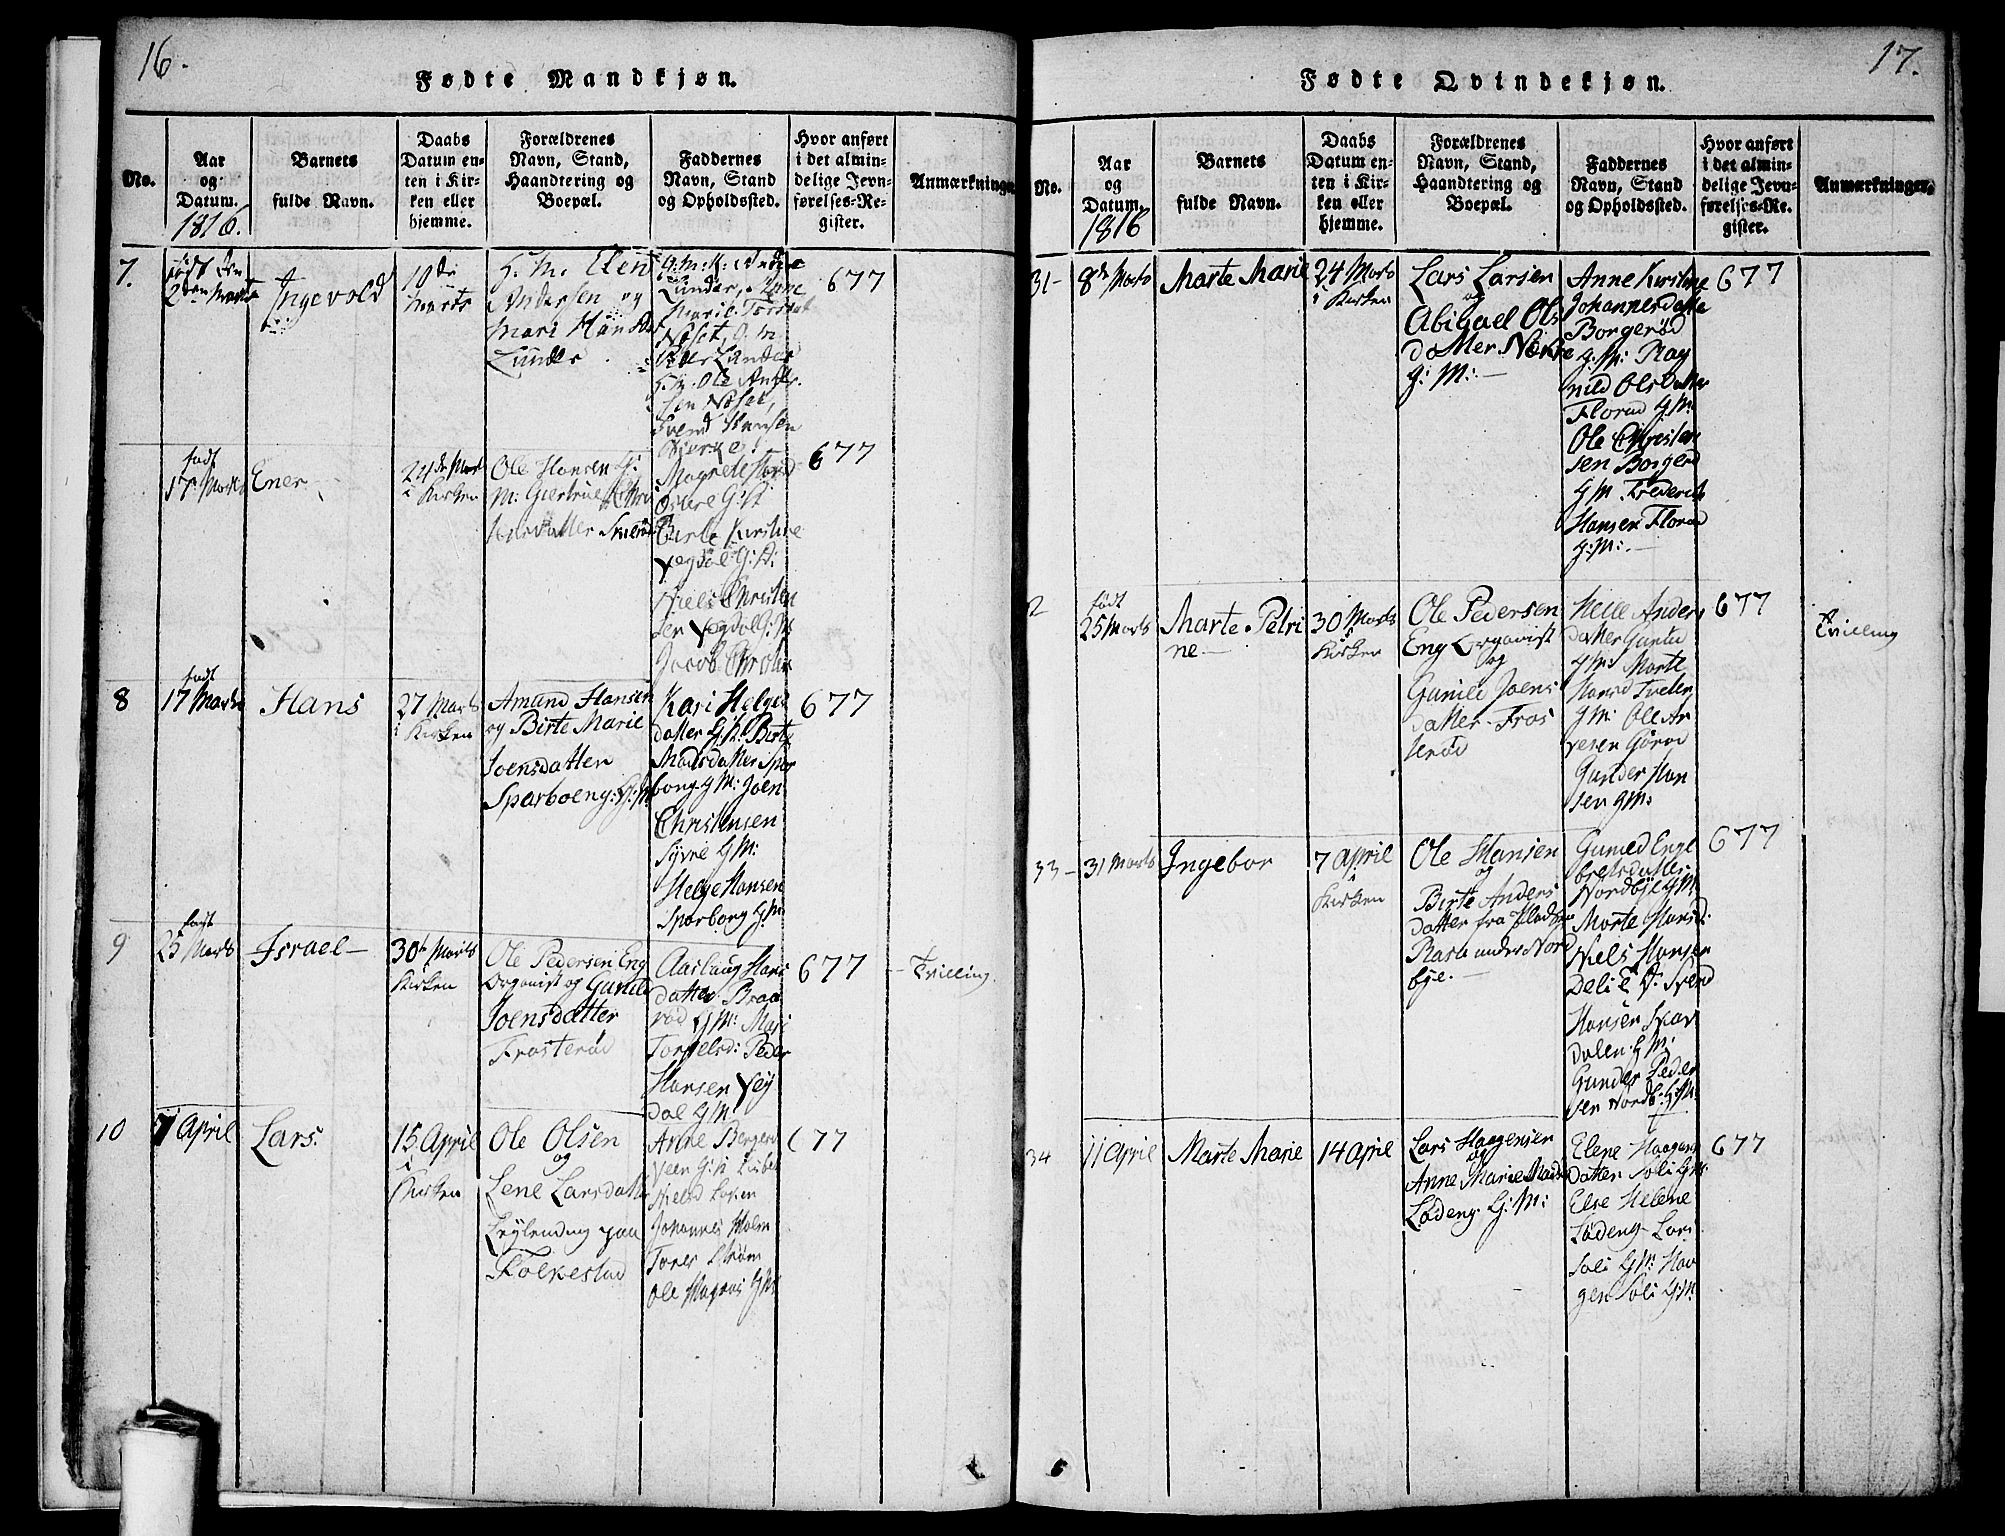 16.
Fødte Mandkjøn.
No.
Aar
og
Datum.
1816.
Barnets
fulde Navn.
Daabs
Datum en-
ten i Kir-
ken eller
hjemme.
Forældrenes
Navn, Stand,
Haandtering og
Boepæl.
Faddernes
Navn, Stand
og Opholdssted.
Hvor anført
i det almin-
delige Jevn-
førelses-Re-
gister.
Anmærkninger
7.
født den
2den Marts
Ingevold
10de
Marts
G. M. Elen
Andersen og
Mari Hans
Lunder
Lunder, Anne
Marie
Noset, G. M
Lunder
G. M. Ole Anders
sen Noset,
Svend Hansen
677
født
17 Marts
Ener
24de Mart
i Kirken
Ole Hansen G:
M: Giertrue
677
Birte Kirstine
Vegdal G: A:
Niels Christen
sen Vegdal G: M
Jacob
8
født
17 Marts
Hans
27 Marts
i Kirken
Amund Hansen
og Birte Marie
Joensdatter
Sparboeng: G: M
Kari Helges
datter G: K: Birte
Madsdatter Spar
bong G M: Joen
Christensen
Syvre G M:
Helge Hansen
Sparborg G M
677
9
født
25 Marts
Israel
30te Marts
Kirken
Ole Pedersen Eng
Organist og Gunild
Joensdatter
Frosterød
Aaslaug Hans
datter Braa
rød G M: Mari
Torgelsd: Peder
Hansen Vey
dal G M
677
Tvilling
10
7 April
Lars
15 April
i
Kirken
Ole Olsen
og
Lene Larsdatter
Leylending paa
Folkestad
Anne Berger
Veen G: K
Johannes Holm
Tores Strøm
Ole Magnus G M
677
17.
Fødte Qvindekjøn.
No.
Aar
og
Datum.
1816
Barnets
fulde Navn.
Daabs
Datum en-
ten i Kir-
ken eller
hjemme.
Forældrenes
Navn, Stand,
Haandtering og
Boepæl.
Faddernes
Navn, Stand
og Opholdssted.
Hvor anført
i det almin-
delige Jevn-
førelses-Re-
gister.
Anmærkninger.
31
8de Marts
Marte Marie
24 Marts
i Kirken
Lars Larsen
og
Abigael Ols
datter Nøkre
G: M:
Anne Kirstine
Johannesdatter
Borgerød
G: M: Rag
nild Olsdatter
Florød G M
Ole Christen
sen Borgerød
G M. Frederich
Hansen Florød
G: M:
677
2
født
25 Marts
Marte Petri
ne
30 Marts
i
Kirken
Ole Pedersen
Eng Organist
og
Gunild Joens
datter Fros
terød
Helle Anders
datter
G M: Marte
Hansd Tveter
G M: Ole Ar
vesen Gørød
Gunder Han
sen G M:
677
Tvilling
33
31 Marts
Ingebor
7 April
i
Kirken
Ole Hansen
og
Birte Anders
datter fra Pladsen
Rasta under Nord
bye.
Gunild Engl
bretsdatter
Nordbye G M
Marte Hansd:
Niels Hansen
Svend
Hansen Skar
dalen G M:
Gunder Peder
sen Nordb: G: M
677
34
11 April
Marte Marie
14 April
Lars Haagensen
og
Anne Marie Mads
Lødeng. G: M:
Elene Haagens
datter Soli G M:
Else Helene
Lødeng Lars
Soli G M: Haa
gen Soli G M
677